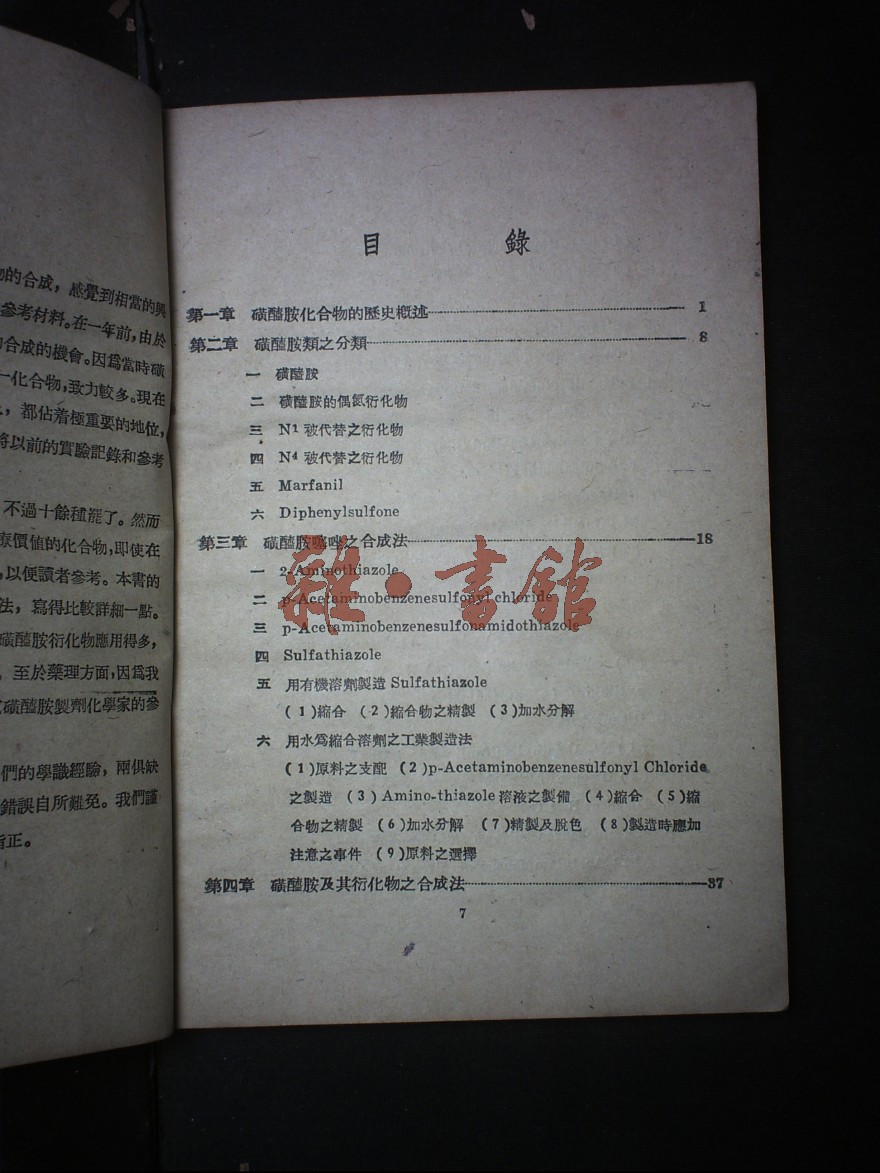 物的合成，感覺到相當的興
參考材料。在一年前，由於
合成的機會。因爲當時磺
一化合物，致力較多。現在
，都佔着極重要的地位，
將以前的實驗記錄和參考
不過十餘種罷了。然而
療價值的化合物，即使在
，以便讀者參考。本書的
法，寫得比較詳細一點。
磺醯胺衍化物應用得多，
。至於藥理方面，因爲我
磺醯胺製劑化學家的參
們的學識經驗，兩俱缺
錯誤自所難免。我們謹
指正。
目 錄
第一章 磺醯胺化合物的歷史槪述 1
第二章 磺醯胺類之分類 8
一 磺醯胺
二 磺醯胺的偶氮衍化物
三 N1 被代替之衍化物
四 N4 被代替之衍化物
五 Marfanil
六 Diphenylsulfone
第三章 磺醯胺噻唑之合成法 18
一 2-Aminothiazole
二 p-Acetaminobenzenesulfonyl chloride
三 p-Acetaminobenzenesulfonamidothiazole
四 Sulfathiazole
五 用有機溶劑製造 Sulfathiazole
(1)縮合 (2)縮合物之精製 (3)加水分解
六 用水爲縮合溶劑之工業製造法
(1)原料之支配 (2)p-Acetaminobenzenesulfonyl Chloride
之製造 (3) Amino-thiazole 溶液之製備 (4)縮合 (5)縮
合物之精製 (6)加水分解 (7)精製及脫色 (8)製造時應加
注意之事件 (9)原料之選擇
第四章 磺醯胺及其衍化物之合成法 37
7
雜·書館